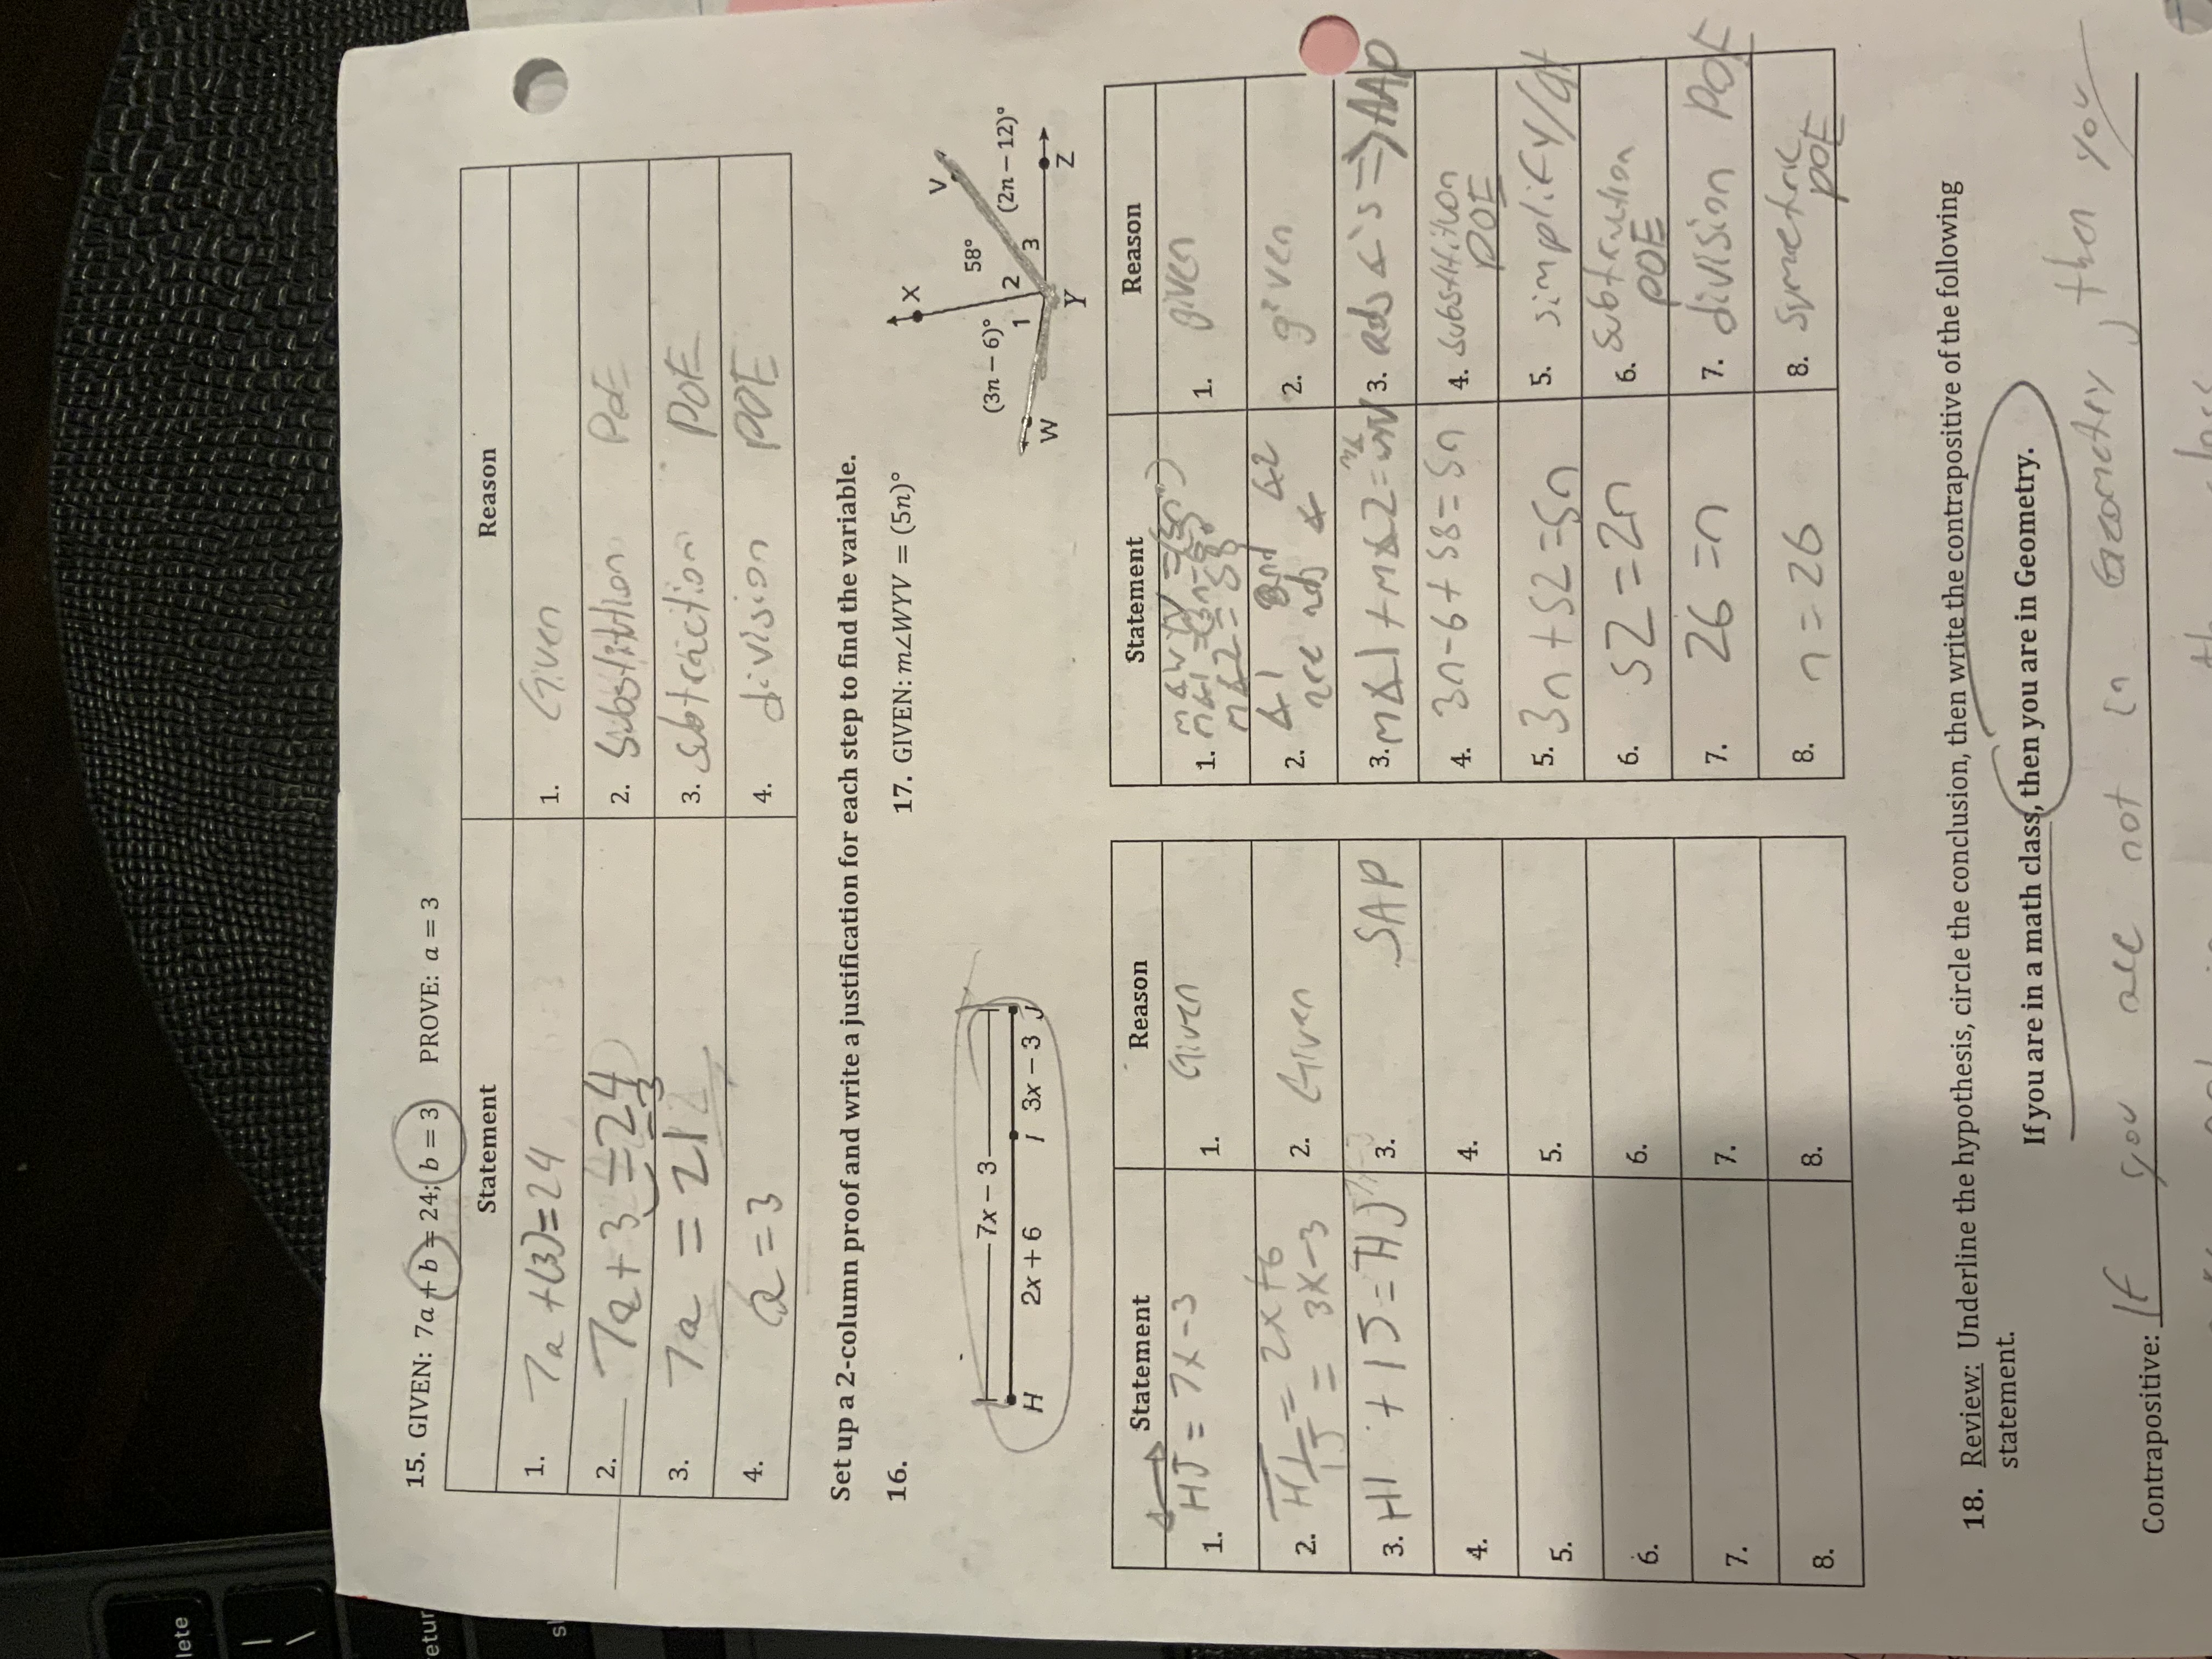 15. GIVEN: 7a + b = 24; b = 3 PROVE: a = 3
Statement Reason
1. 7a + (3) = 24 1. Given
2. 7a + 3 = 24 2. Substitution PoE
- 3
3. 7a = 21 3. subtraction POE
4. a = 3 4. division POE
Set up a 2-column proof and write a justification for each step to find the variable.
16.
7x − 3
H 2x + 6 I 3x − 3 J
Statement Reason
1. HJ = 7x - 3 1. Given
2. HI = 2x + 6 2. Given
IJ = 3x - 3
3. HI + IJ = HJ 3. SAP
4. 4.
5. 5.
6. 6.
7. 7.
8. 8.
17. GIVEN: m∠WYV = (5n)°
X
V
(3n − 6)° 58° (2n − 12)°
1 2 3
W Y Z
Statement Reason
1. 1. given
m∠2 = 58
2. ∠1 and ∠2 2. given
are adj ∠
3. m∠1 + m∠2 = 3. adj ∠'s => AAP
4. 3n - 6 + 58 = 5n 4. substitition POE
5. 3n + 52 = 5n 5. simplify/
6. 52 = 2n 6. subtraction POE
7. 26 = n 7. division POE
8. n = 26 8. symetric POE
18. Review: Underline the hypothesis, circle the conclusion, then write the contrapositive of the following
statement.
If you are in a math class, then you are in Geometry.
Contrapositive: If you are not in Geometry, then you